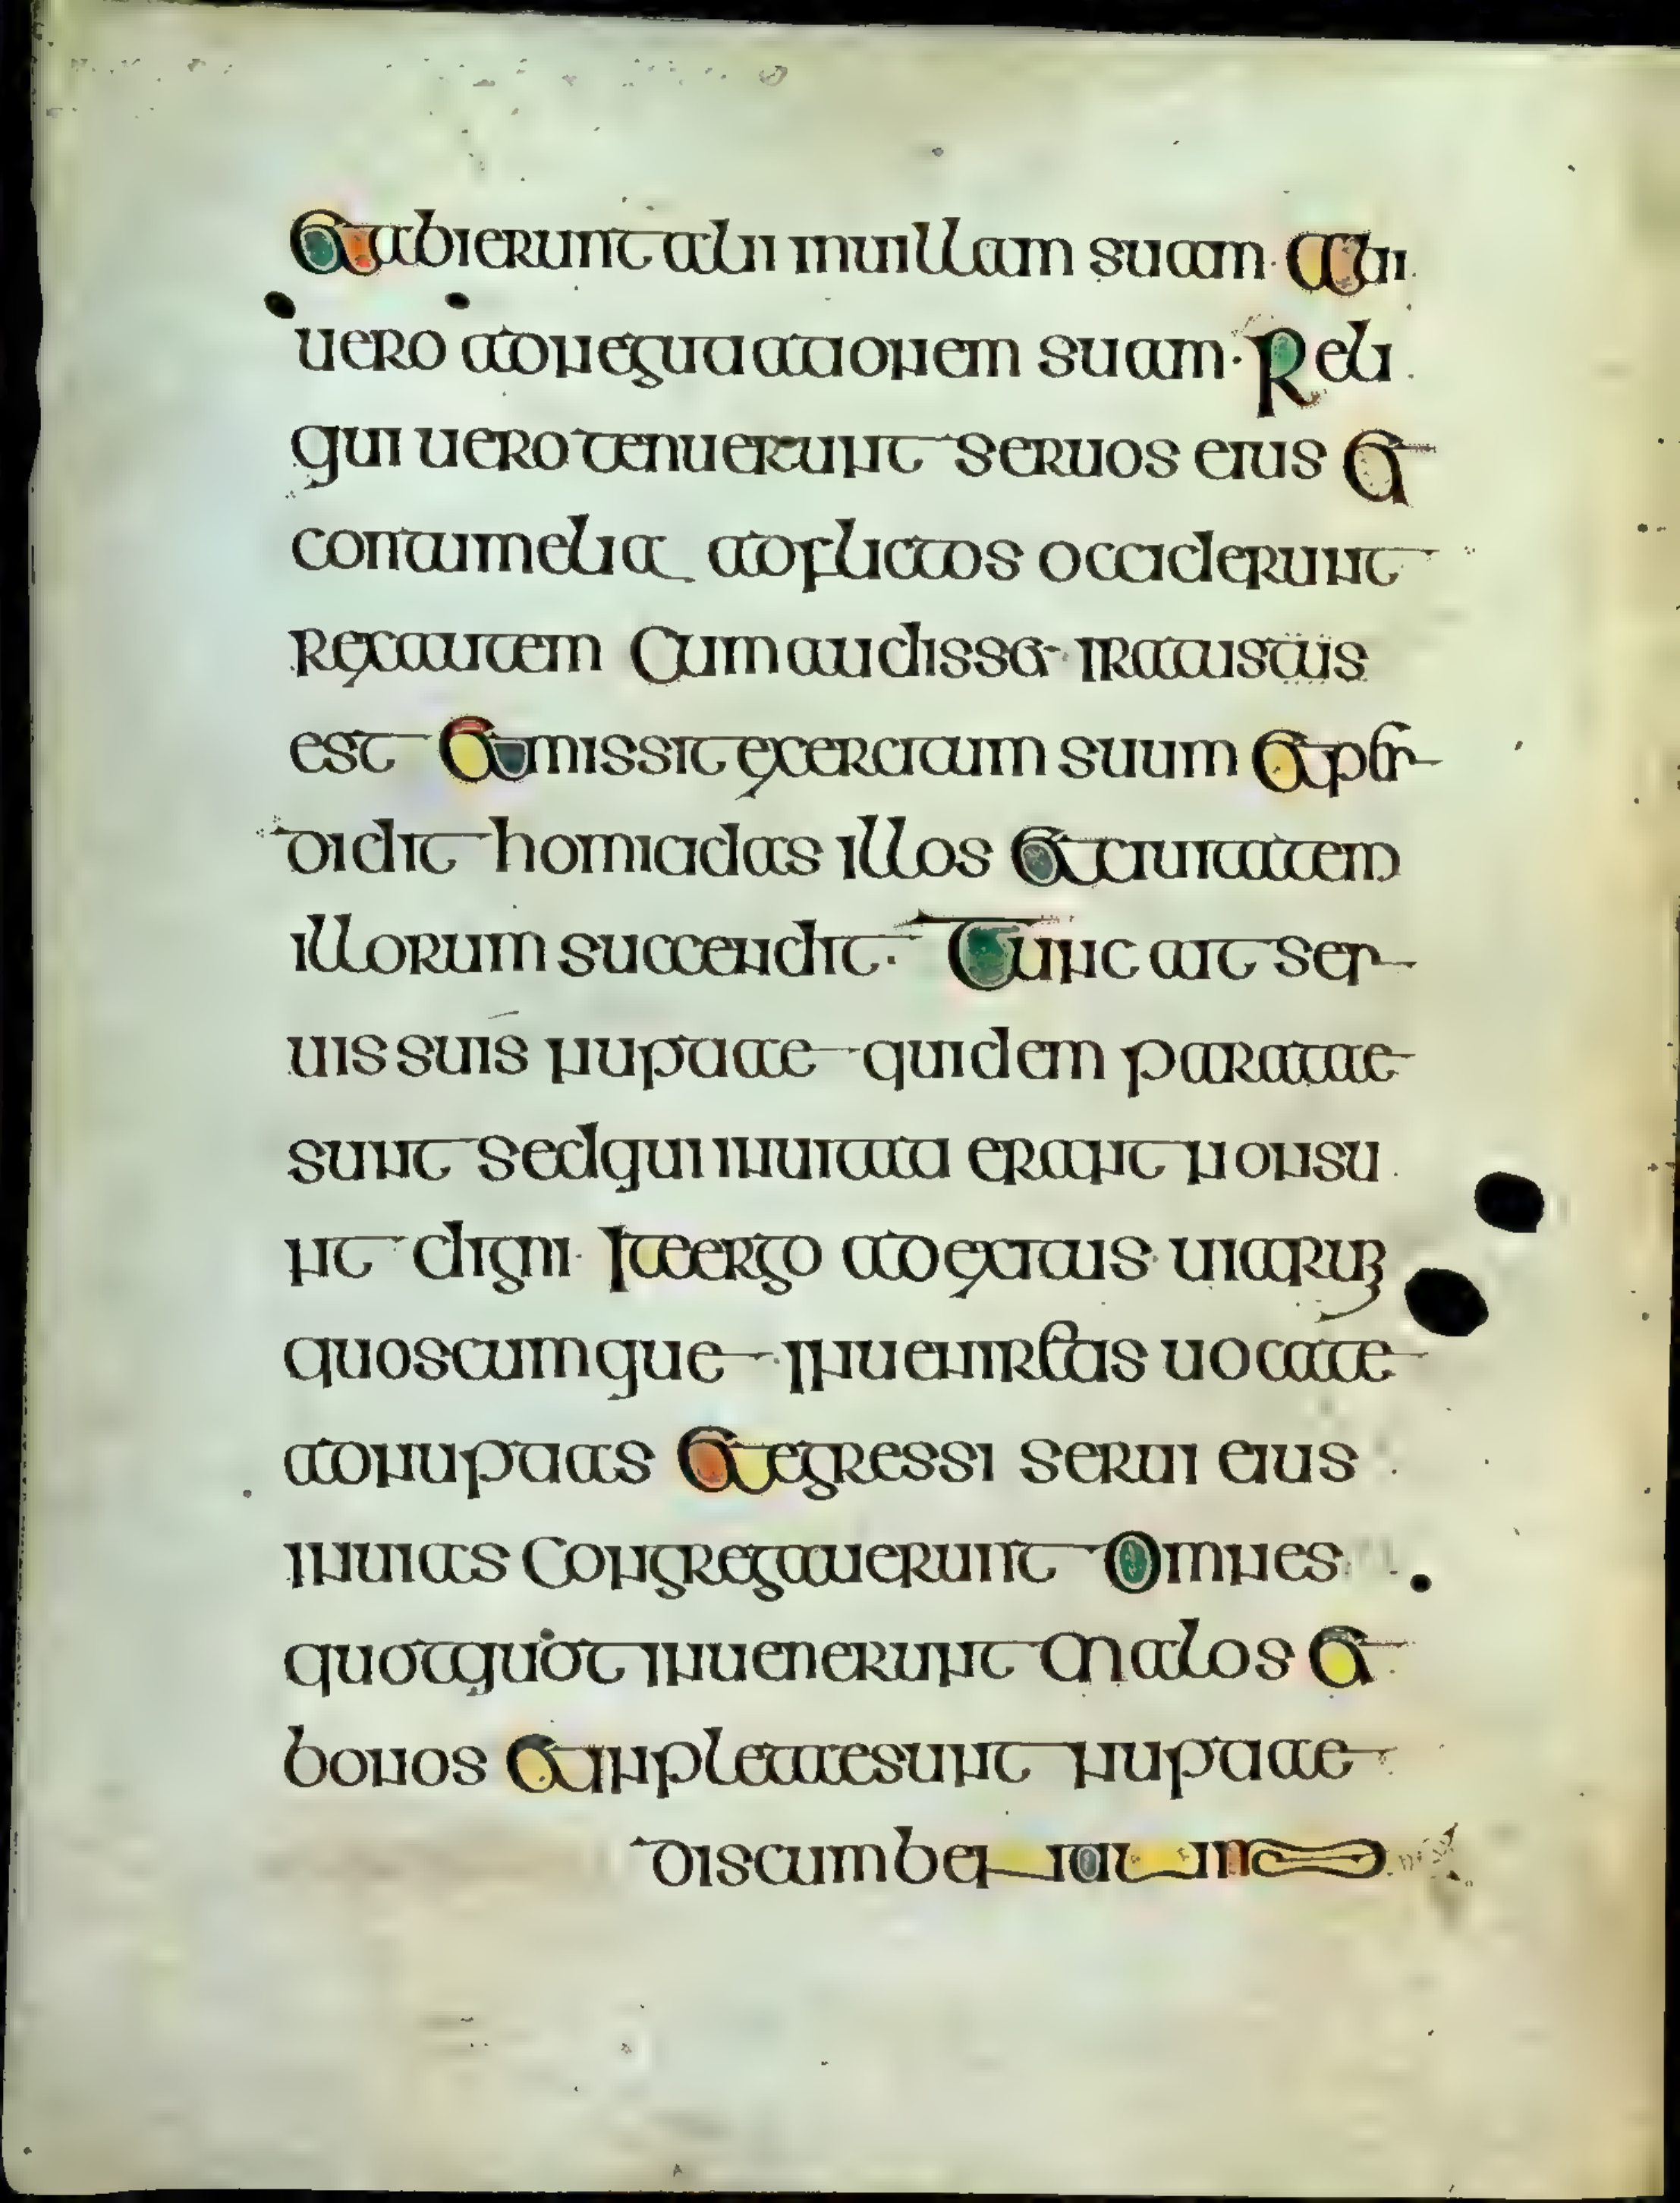 Et abierunt alii in uillam suam · Alii
uero ad negutiationem suam · Reli
qui uero tenuerunt seruos eius Et
contumelia adflictos occiderunt
Rex autem Cum audisset iratus tüs
est Et missit exercitum suum Et per
didit homicidas illos Et ciuitatem
illorum succendit · Tunc ait ser
uis suis nuptiae quidem paratae
sunt sed qui inuitati erant non su
nt digni · Ite ergo ad exitus uiarum
quoscumque inueniretis uocate
ad nuptias Et egressi serui eius
in uias Congregauerunt Omnes
quotquot inuenerunt Malos Et
bonos Et inpletae sunt nuptiae
discumbentium